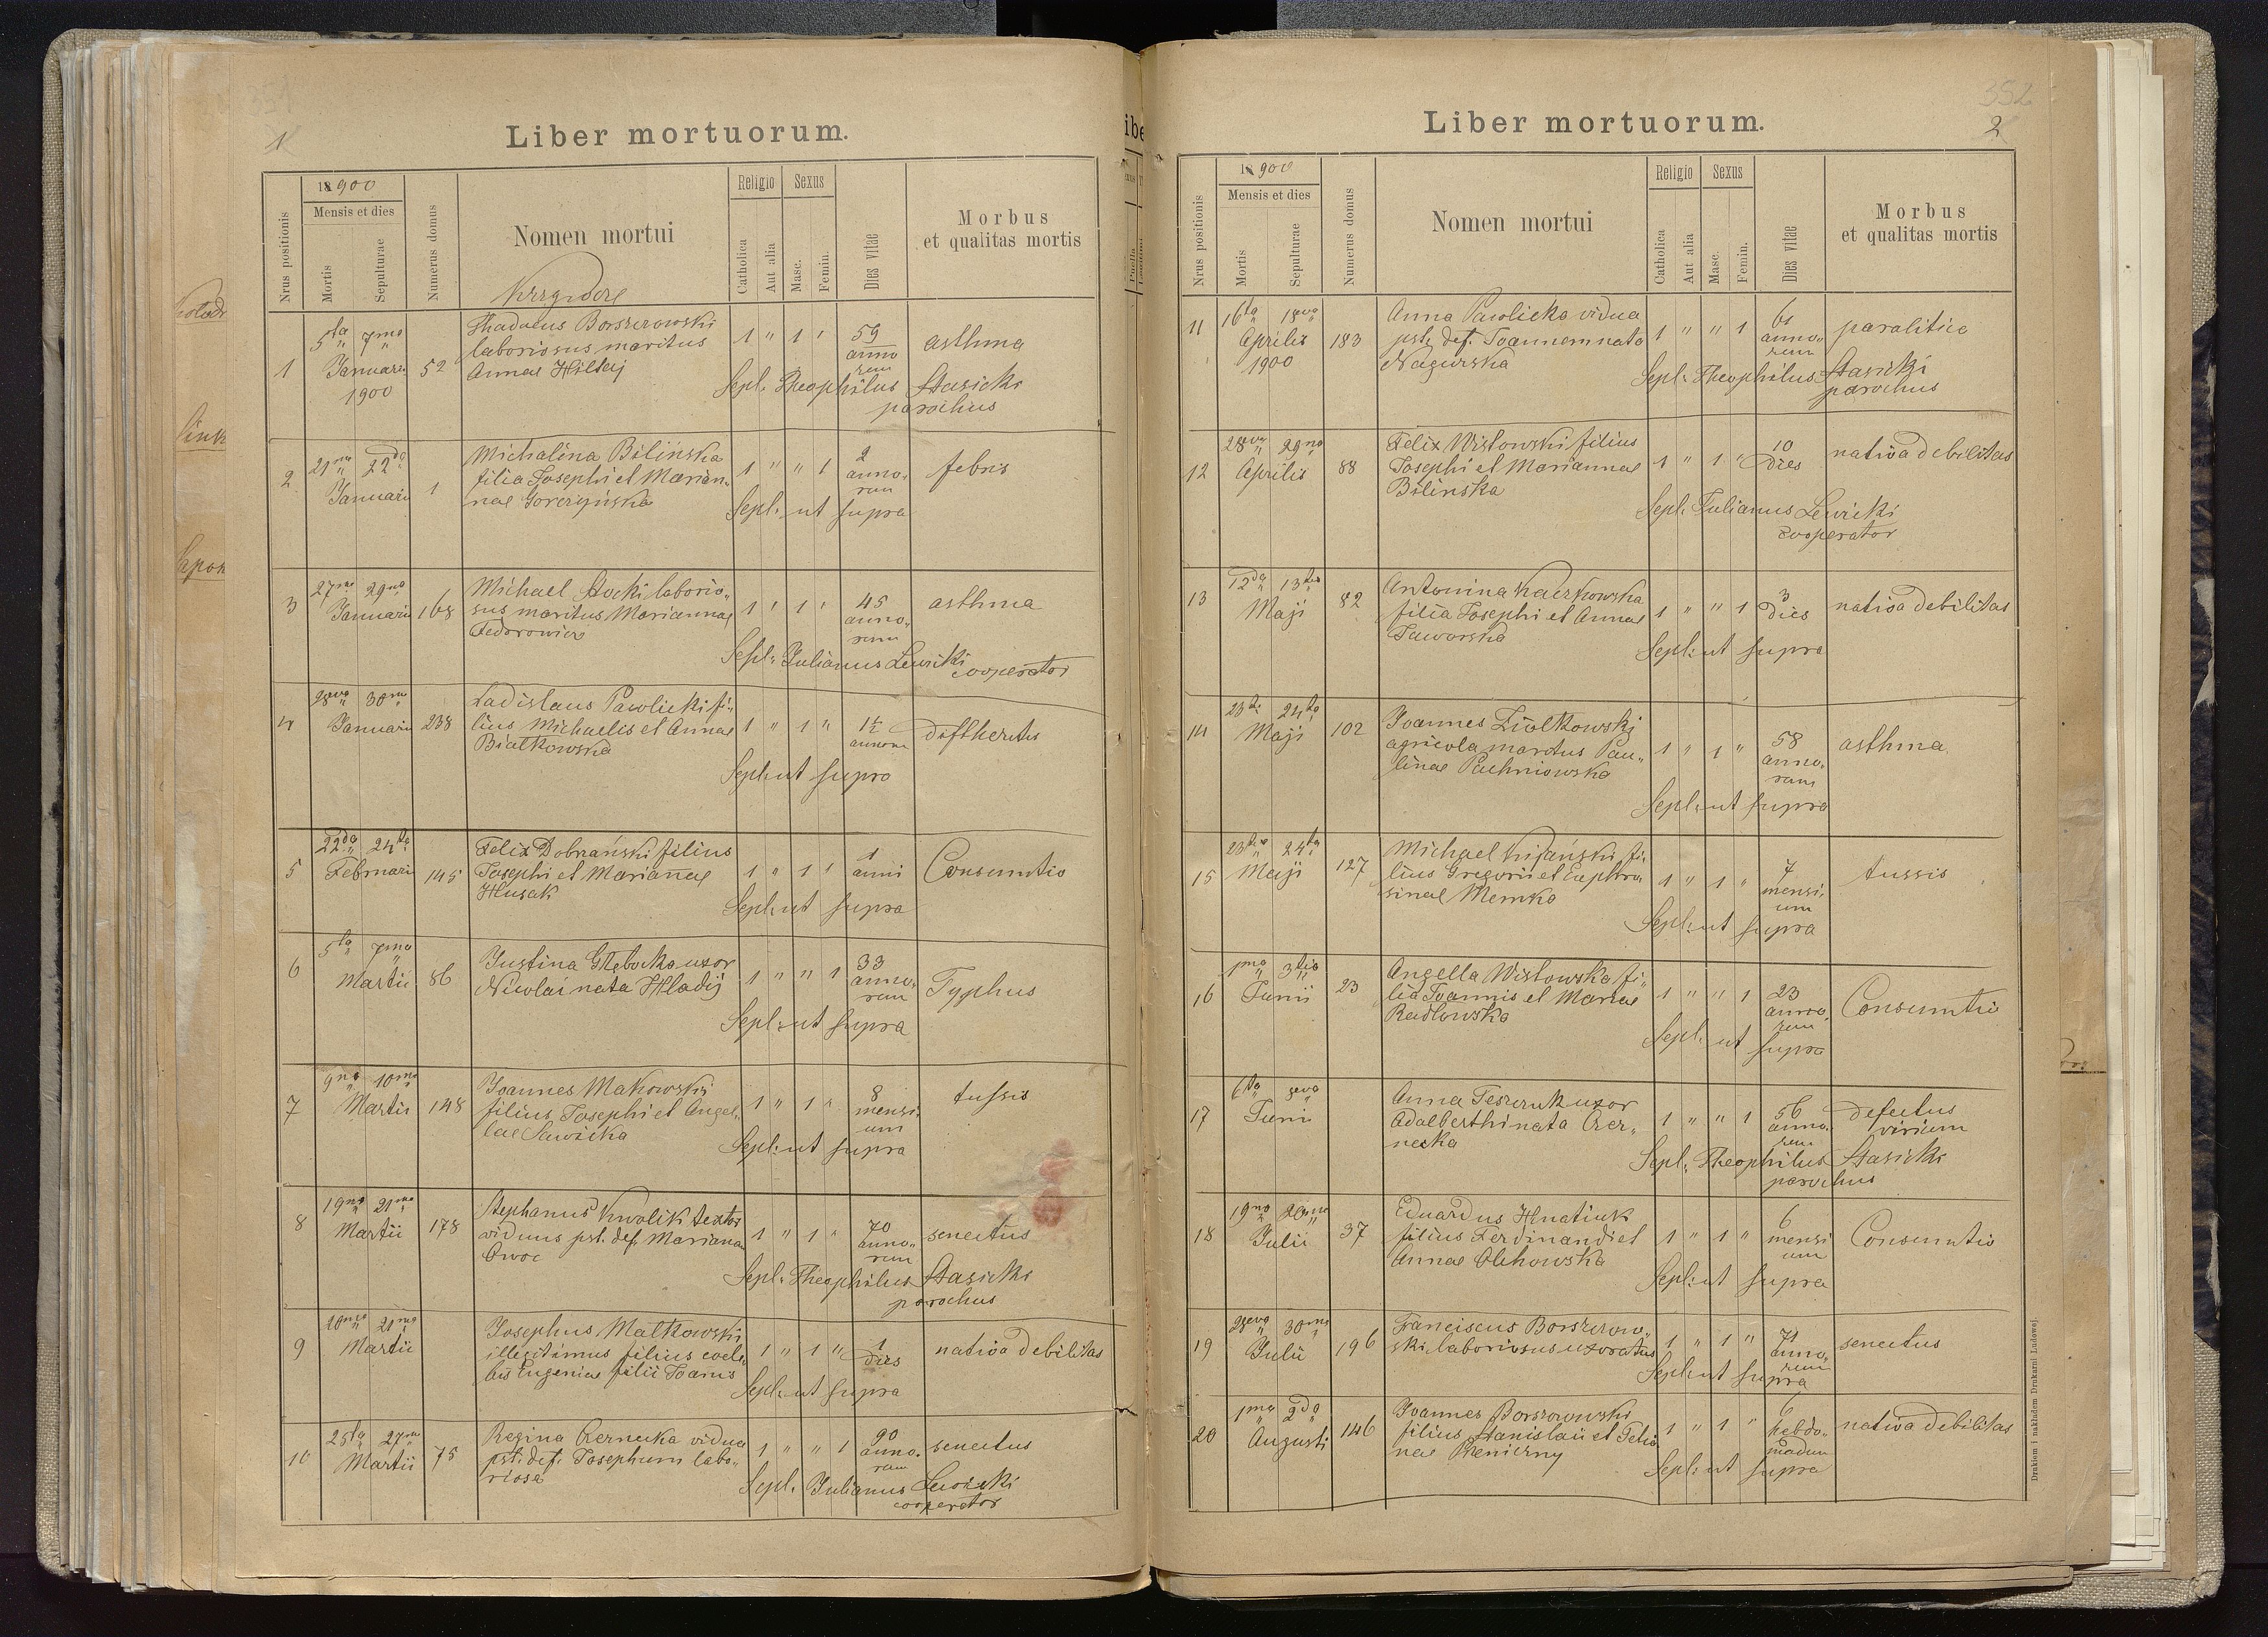 1
Liber mortuorum.
Nrus positionis
1900
Mensis et dies
Mortis
Sepulturae
Numerus domus
Nomen mortui
Religio
Catholica
Aut alia
Sexus
Masc.
Femin.
Dies vitae
Morbus
et qualitas mortis
1
5ta 7ma
Januarii
1900
52
Thadaeus Borszczowski
laboriosus maritus
Annae Hiltaj
1 " 1 "
59
anno
rum
asthma
Sepl: Theophilus Stasicki
parochus
2
21ma 22da
Januarii
1
Michalina Bilińska
filia Josephi et Marian„
nae Gorczyńska
1 " " 1
2
anno„
rum
febris
Sepl: ut supra
3
27ma 29na
Januarii
168
Michael Stocki laborio„
sus maritus Mariannae
Fedorowicz
1 " 1 "
45
anno„
rum
asthma
Sepl: Julianus Lewicki
cooperator
4
28va 30ma
Januarii
238
Ladislaus Pawlicki fi„
lius Michaelis et Annae
Białkowska
1 " 1 "
1½
annorum
diftheritis
Sepl: ut supra
5
22da 24ta
Februarii
145
Felix Dobrzański filius
Josephi et Mariannae
Husak
1 " 1 "
1
anni
Consumtio
Sepl: ut supra
6
5ta 7ma
Martii
86
Justina Głębocka uxor
Nicolai nata Hladij
1 " " 1
33
anno„
rum
Typhus
Sepl: ut supra
7
9na 10ma
Martii
148
Joannes Makowski
filius Josephi et Angel„
lae Sawicka
1 " 1 "
8
mensi„
um
tussis
Sepl: ut supra
8
19na 21ma
Martii
178
Stephanus Kwolik textor
viduus pst. def. Mariannam
Owoc
1 " 1 "
70
anno„
rum
senectus
Sepl: Theophilus Stasicki
parochus
9
20ma 21ma
Martii
Josephus Małkowski
illegitimus filius coele„
bis Eugeniae filii Joannis
1 " 1 "
1
dies
nativa debilitas
Sepl: ut supra
10
25ta 27ma
Martii
75
Regina Czernecka vidua
pst. def. Josephum labo„
riosa
1 " " 1
90
anno„
rum
senectus
Sepl. Julianus Lewicki
cooperator
352
2
Liber mortuorum.
Nrus positionis
1900
Mensis et dies
Mortis
Sepulturae
Numerus domus
Nomen mortui
Religio
Catholica
Aut alia
Sexus
Masc.
Femin.
Dies vitae
Morbus
et qualitas mortis
11
16ta 18va
Aprilis
1900
183
Anna Pawlicka vidua
pst. def. Joannem nata
Nagórska
1 " " 1
61
anno„
rum
paralitica
Sepl: Theophilus Stasicki
parochus
12
28va 29na
Aprilis
88
Felix Wisłowski filius
Josephi et Mariannae
Bilińska
1 " 1 "
10
dies
nativa debilitas
Sepl: Julianus Lewicki
cooperator
13
12da 13tia
Maji
82
Antonina Kaczkowska
filia Josephi et Annae
Jaworska
1 " " 1
3
dies
nativa debilitas
Sepl: ut supra
14
23tia 24ta
Maji
102
Joannes Ziółkowski
agricola maritus Pau„
linae Pachniowska
1 " 1 "
58
anno„
rum
asthma
Sepl: ut supra
15
23tia 24ta
Maji
127
Michael Kijański fi„
lius Gregorii et Euphro
sinae Memka
1 " 1 "
7
mensi„
um
tussis
Sepl: ut supra
16
1ma 3tia
Junii
23
Angella Wisłowska fi„
lia Joannis et Mariae
Radłowska
1 " " 1
23
anno„
rum
Consumtio
Sepl. ut supra
17
6ta 8va
Junii
Anna Teszczuk uxor
Adalberthi nata Czer„
necka
1 " " 1
56
anno„
rum
defectus
virium
Sepl: Theophilus Stasicki
parochus
18
19na 20ma
Julii
37
Eduardus Hnatiuk
filius Ferdinandi et
Annae Olchowska
1 " 1 "
6
mensi
um
Consumtio
Sepl: ut supra
19
28va 30ma
Julii
196
Franciscus Borszczow„
ski laboriosus uxoratus
1 " 1 "
71
anno„
rum
senectus
Sepl: ut supra
20
1ma 2da
Augusti
146
Joannes Borszczowski
filius Stanislaii et Tecla
nae Pheniczny
1 " 1 "
6
hebdo„
madum
nativa debilitas
Sepl: ut supra
Drukiem i nakładem Drukarni Ludowej.